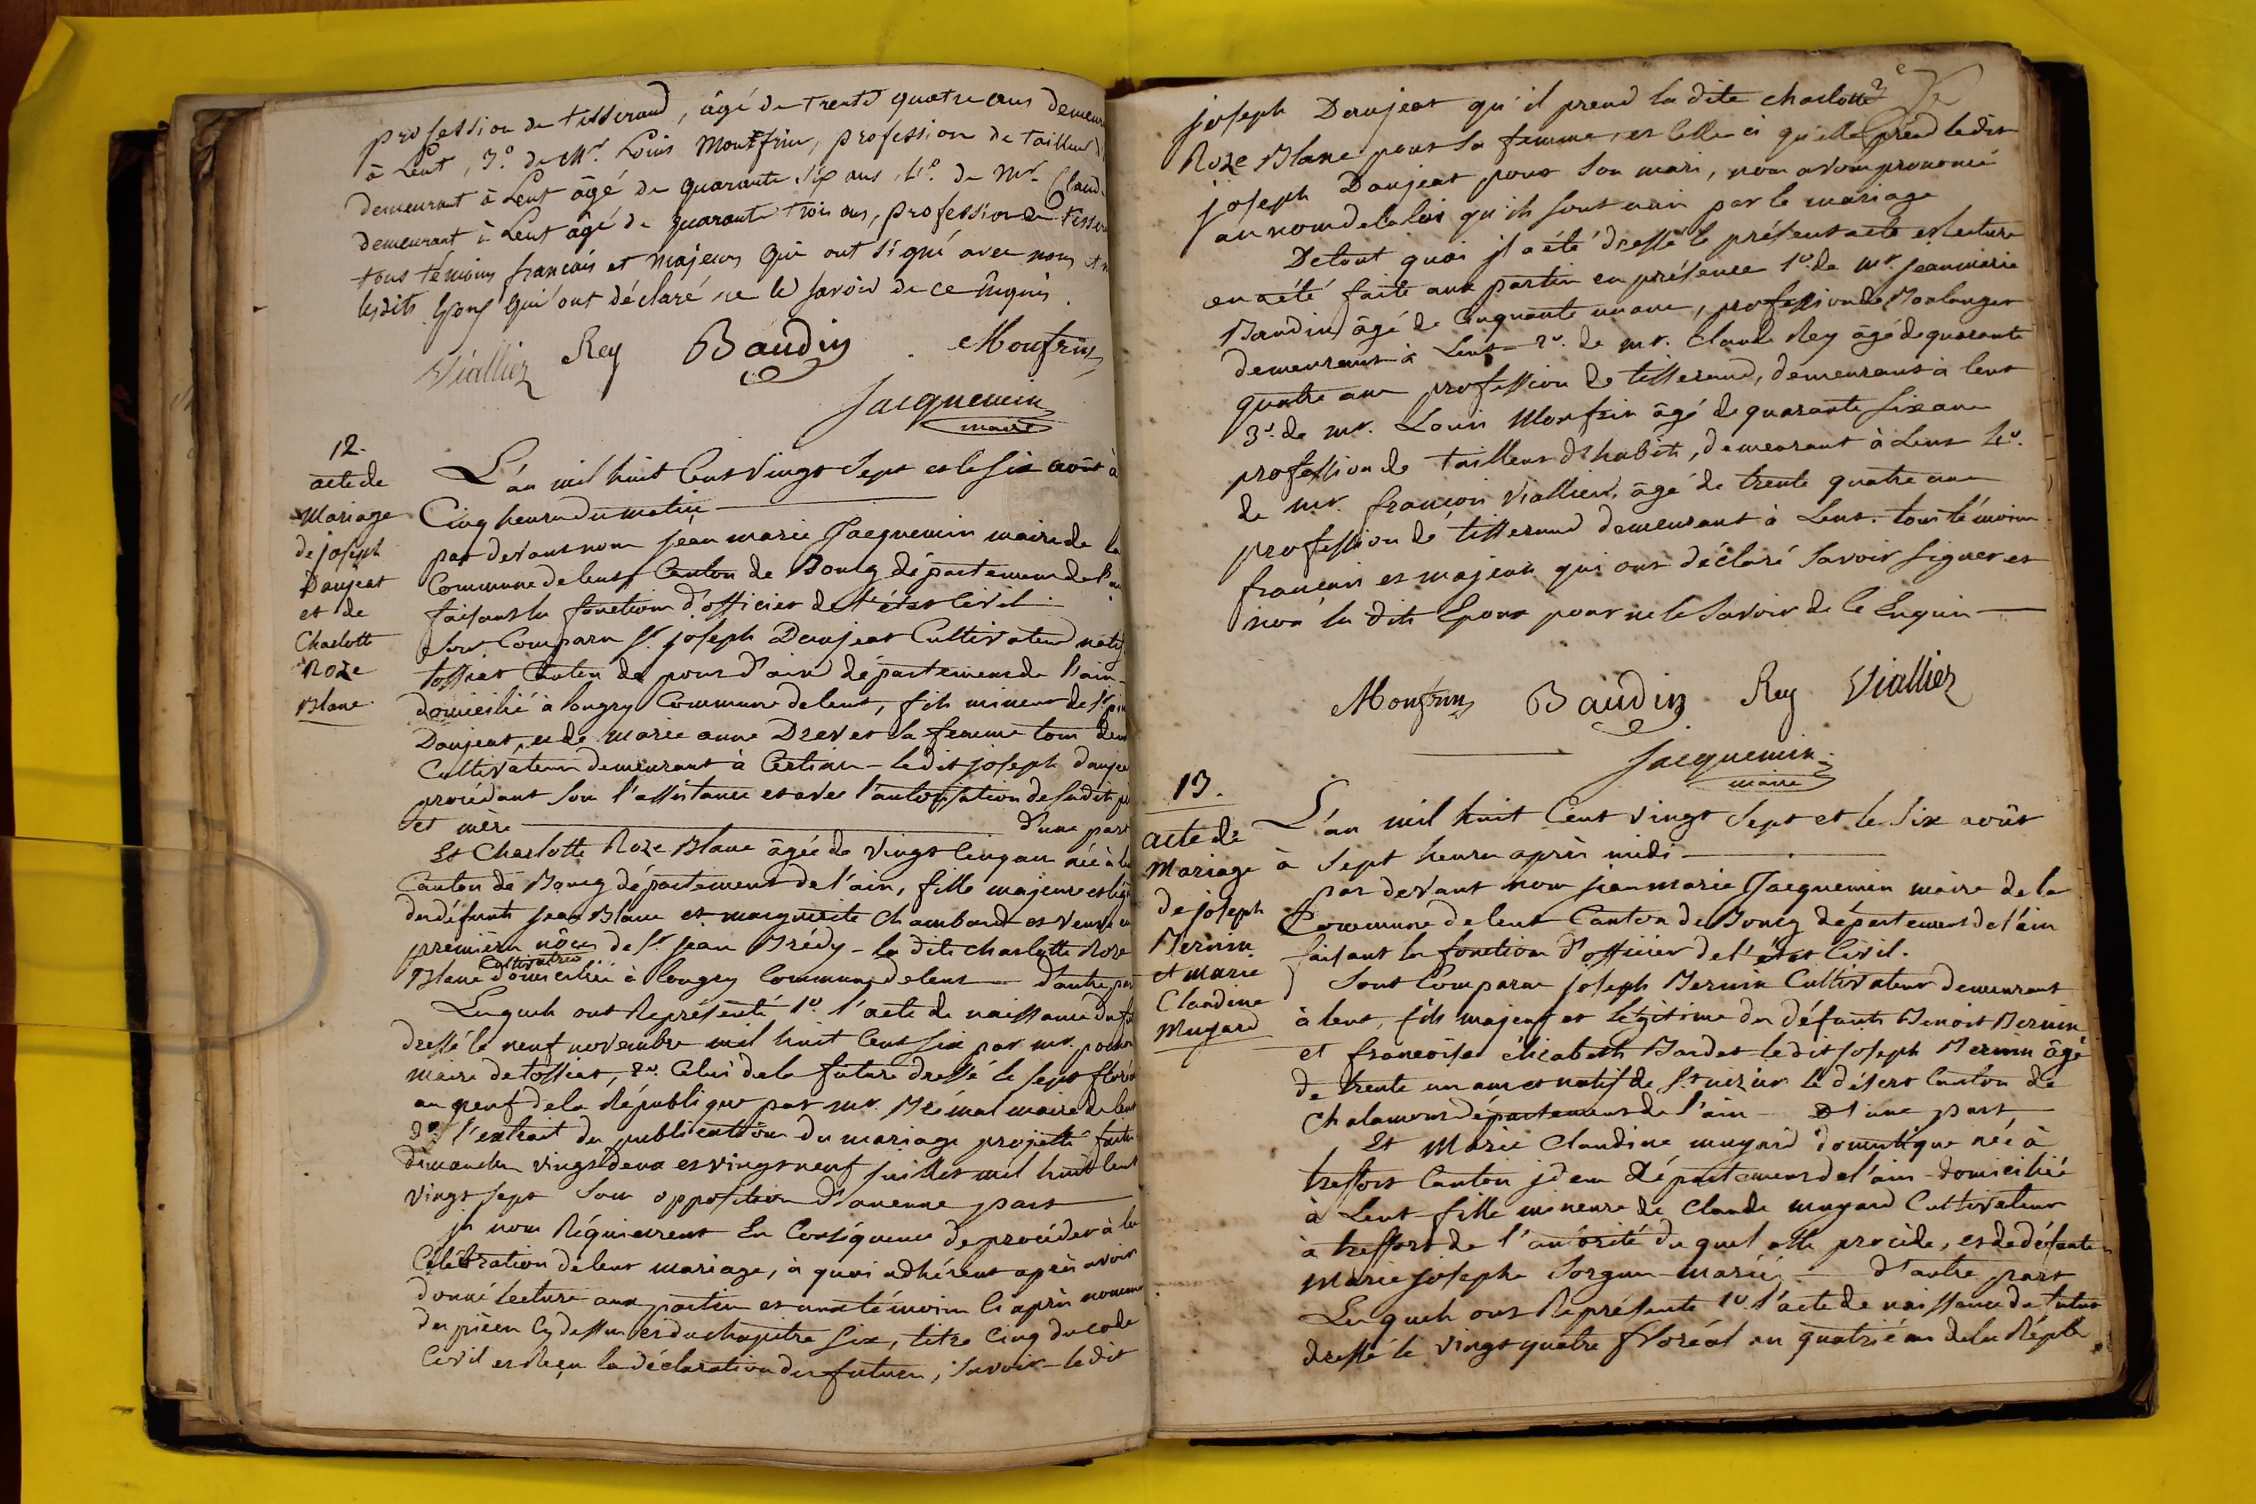 profession de tisserand, âgé de trente quatre ans demeur
à Lent, 3.º de Mr. Louis Montfrin, profession de tailleur d
demeurant à Lent âgé de quarante six ans, 4.º de Mr. Claude
demeurant à Lent âgé de quarante trois ans, profession de tisser
tous témoins français et majeurs qui ont signé avec nous et n
lesdits Epoux qui ont déclaré ne le savoir de ce enquis.
Viallier Rey Baudin Monfrin
Jacquemin
maire
12.
acte de
Mariage
de joseph
Daujeat
et de
Charlott
Roze
Blanc
L'an mil huit Cent Vingt Sept et le six août à
Cinq heures du matin
par devant nous jean marie Jacquemin maire de la
Commune de lent Canton de Bourg département de l'ain
faisant les fonctions d'officier de l'état Civil.
Sont Comparu Sr. joseph Daujeat Cultivateur natif
tossiat Canton de pont d'ain département de l'ain
domicilié à longry Commune de lent, fils mineur de Sr.
Daujeat, et de marie anne Drevet sa femme tous deux
Cultivateurs demeurant à Certines - ledit joseph daujea
procédant sous l'assistance et avec l'autorisation de sesdits p
et mère d'une part
Et Charlotte Roze Blanc âgée de vingt cinq ans née à le
Canton de Bourg département de l'ain, fille majeure et lég
des défunts jean Blanc et marguerite Chambard et veuve en
premières nôces de Sr. jean Brédy - la dite charlotte Roze
Cultivatrice
Blanc domiciliée à longry Commune de lent d'autre par
Lesquels ont Représenté 1º. l'acte de naissance du fu
dressé le neuf novembre mil huit Cent six par mr.
maire de tossiat, 2º. Celui de la future dressé le sept floréa
an neuf de la République par mr. Brémal maire de lent
3º. l'extrait des publications du mariage projetté faites
dimanches vingt deux et vingt neuf juillet mil huit Cent
vingt sept sans opposition d'aucune part
ils nous Réquierent En Conséquence de procéder à la
Célébration de leur mariage, à quoi adhérent après avoir
donné lecture aux parties et aux témoins ci après nommé
des pièces Cy dessus et du chapitre six, titre Cinq du code
Civil et Reçu la déclaration des futurs, savoir ledit
joseph Daujeat qu'il prend la dite charlotte
Roze Blanc pour sa femme, et Celle ci qu'elle prend ledit
joseph Daujeat pour son mari, nous avons prononcé
au nom de la loi qu'ils sont unis par le mariage
De tout quoi il a été dressé le présent acte et lecture
en a été faite aux parties en présence 1º. de mr. jean marie
Baudin âgé de Cinquante un ans, profession de Boulanger
demeurant à Lent - 2º. de mr. Claude Rey âgé de quarante
quatre ans profession de tisserand, demeurant à lent
3º. de mr. Louis Monfrin âgé de quarante six ans
profession de tailleur d'habits, demeurant à Lent 4º.
de mr. françois Viallier, âgé de trente quatre ans
profession de tisserand demeurant à Lent. tous témoins
français et majeurs qui ont déclaré savoir signer et
non les dits Epoux pour ne le savoir de ce Enquis
Monfrin Baudin Rey Viallier
Jacquemin
maire
13.
acte de
Mariage
de joseph
Bernin
et marie
Claudine
Mugard
L'an mil huit Cent vingt sept et le six août
à sept heures après midi
par devant nous jean marie Jacquemin maire de la
Commune de lent Canton de Bourg département de l'ain
faisant les fonctions d'officier de l'état Civil.
Sont Comparu joseph Bernin Cultivateur demeurant
à lent, fils majeur et légitime des défunts Benoit Bernin
et françoise élizabeth Bardet ledit joseph Bernin âgé
de trente un ans et natif de St. nizier le désert Canton de
Chalamont département de l'ain - D'une part
Et Marie Claudine mugard domestique née à
treffort Canton idem Département de l'ain - domiciliée
à Lent fille mineure de Claude mugard Cultivateur
à treffort de l'autorité duquel elle procède, et de défunte
Marie josephe mariés d'autre part
Lesquels ont Représenté 1º. l'acte de naissance du futur
dressé le vingt quatre floréal an quatrième de la Répbl